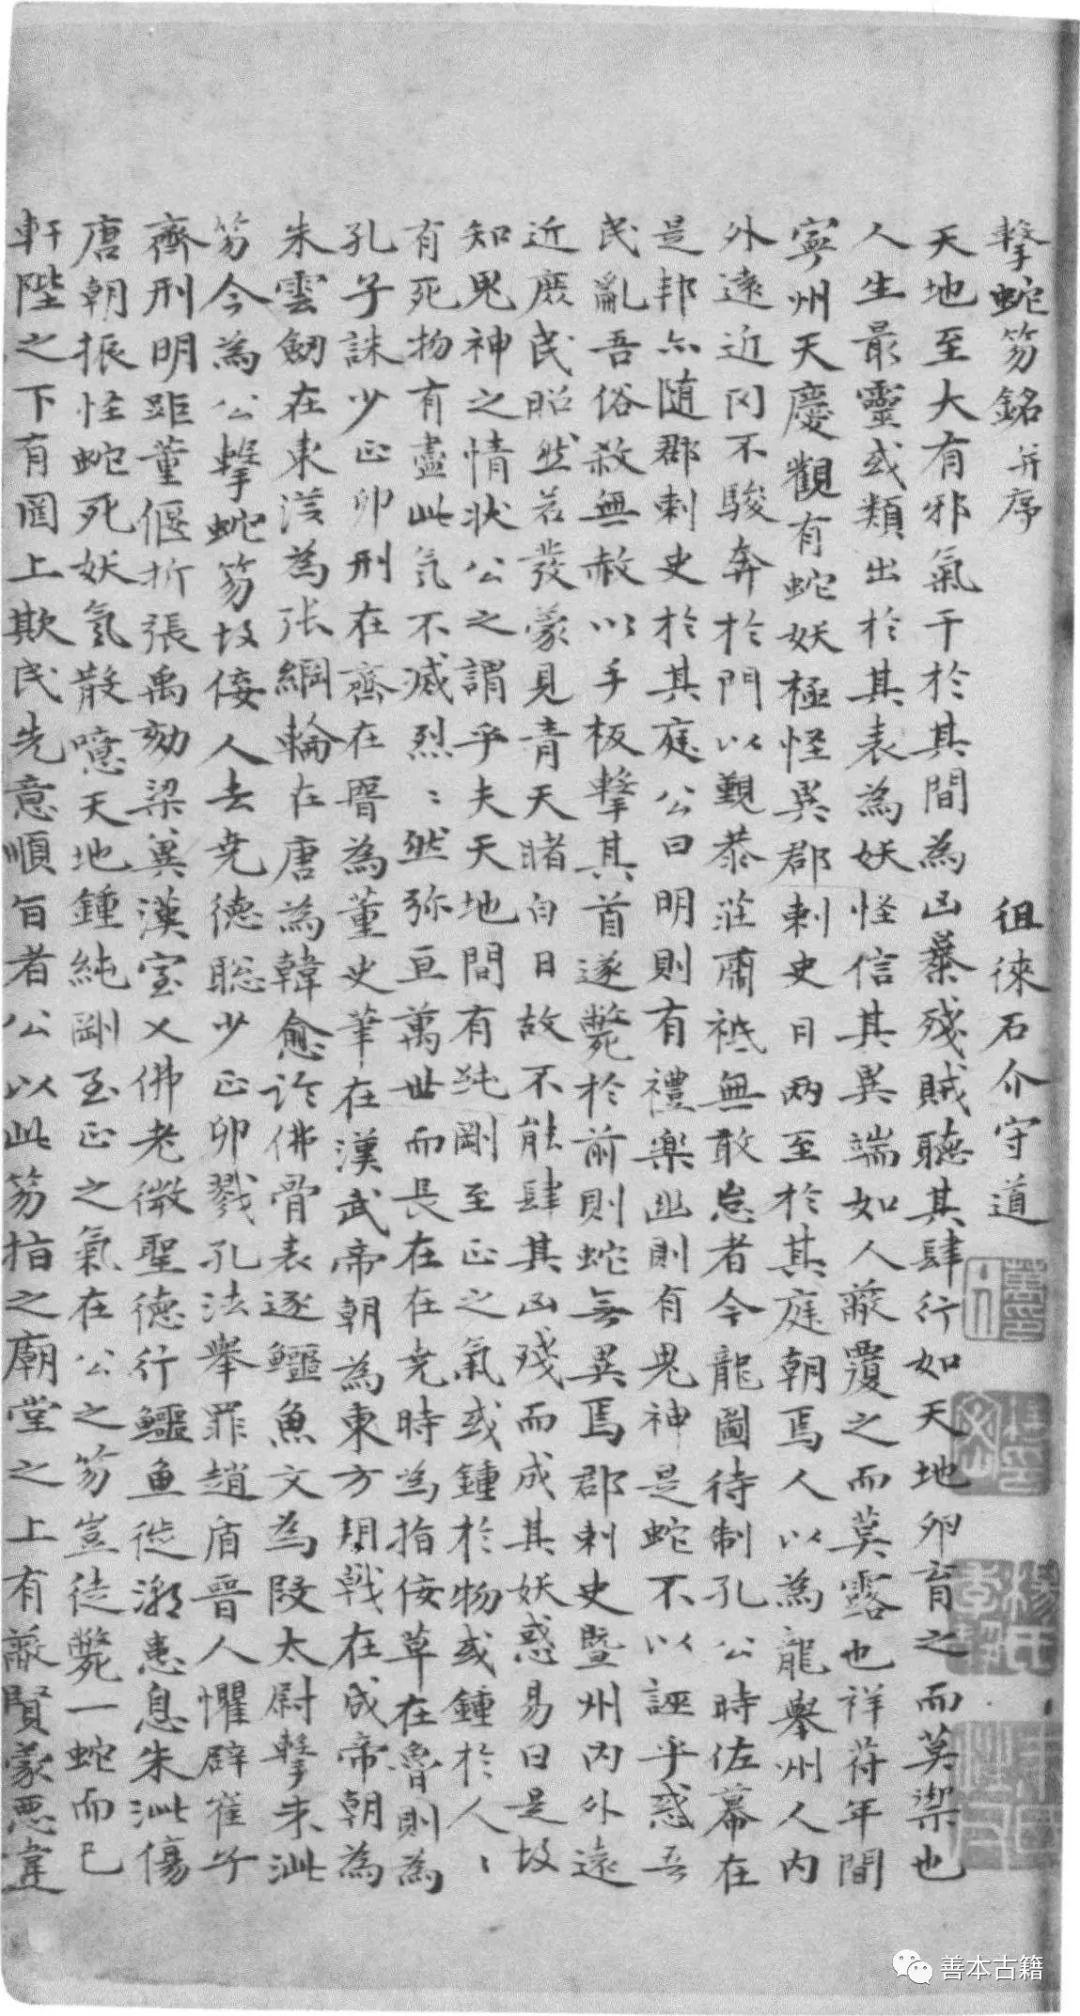 擊蛇笏銘并序 徂徠石介守道
天地至大有邪氣干於其間為凶暴殘賊聽其肆行如天地卵育之而莫禦也
人生最靈或類出於其表為妖怪信其異端如人蔽覆之而莫露也祥符年間
寧州天慶觀有蛇妖極怪異郡刺史日兩至於其庭朝焉人以為龍舉州人內
外遠近罔不駿奔於門以覲恭莊肅祗無敢怠者今龍圖待制孔公時佐幕在
是邦亦隨郡刺史於其庭公曰明則有禮樂幽則有鬼神是蛇不以誣乎惑吾
民亂吾俗殺無赦以手板擊其首遂斃於前則蛇無異焉郡刺史暨州內外遠
近庶民昭然若發蒙見青天睹白日故不能肆其凶殘而成其妖惑易曰是故
知鬼神之情狀公之謂乎夫天地間有純剛至正之氣或鍾於物或鍾於人〻
有死物有盡此氣不滅烈〻然弥亘萬世而長在在尭時為指佞草在魯則為
孔子誅少正卯刑在齊在晉為董史筆在漢武帝朝為東方朔戟在成帝朝為
朱雲劒在東漢為張綱輪在唐為韓愈論佛骨表逐鱷魚文為段太尉擊朱泚
笏今為公擊蛇笏故佞人去尭德聡少正卯戮孔法舉罪趙盾晉人懼辟崔子
齊刑明距董偃折張禹劾梁冀漢室乂佛老微聖德行鱷魚徙潮患息朱泚傷
唐朝振怪蛇死妖氣散噫天地鍾純剛至正之氣在公之笏豈徒斃一蛇而已
軒陛之下有罔上欺民先意順旨者公以此笏指之廟堂之上有蔽賢蒙惡違
善本古籍